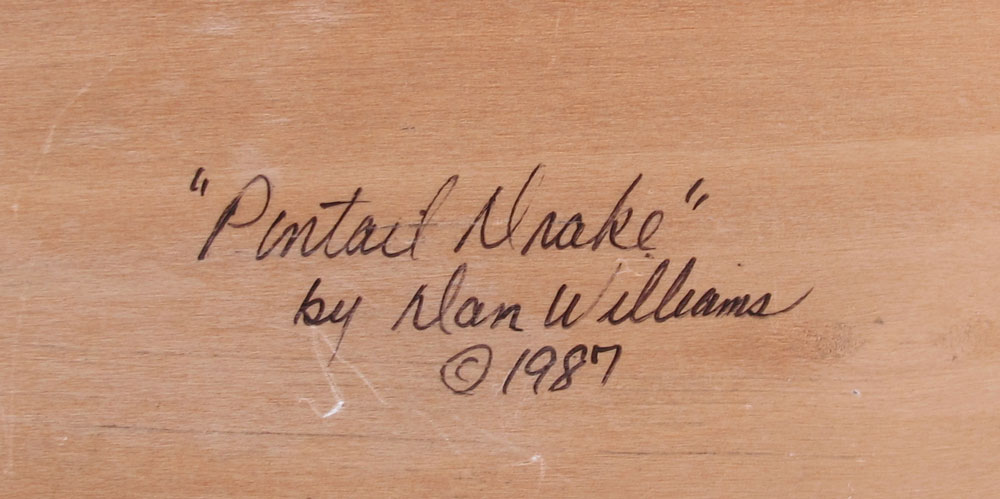 "Pintail Drake"
by Dan Williams
© 1987